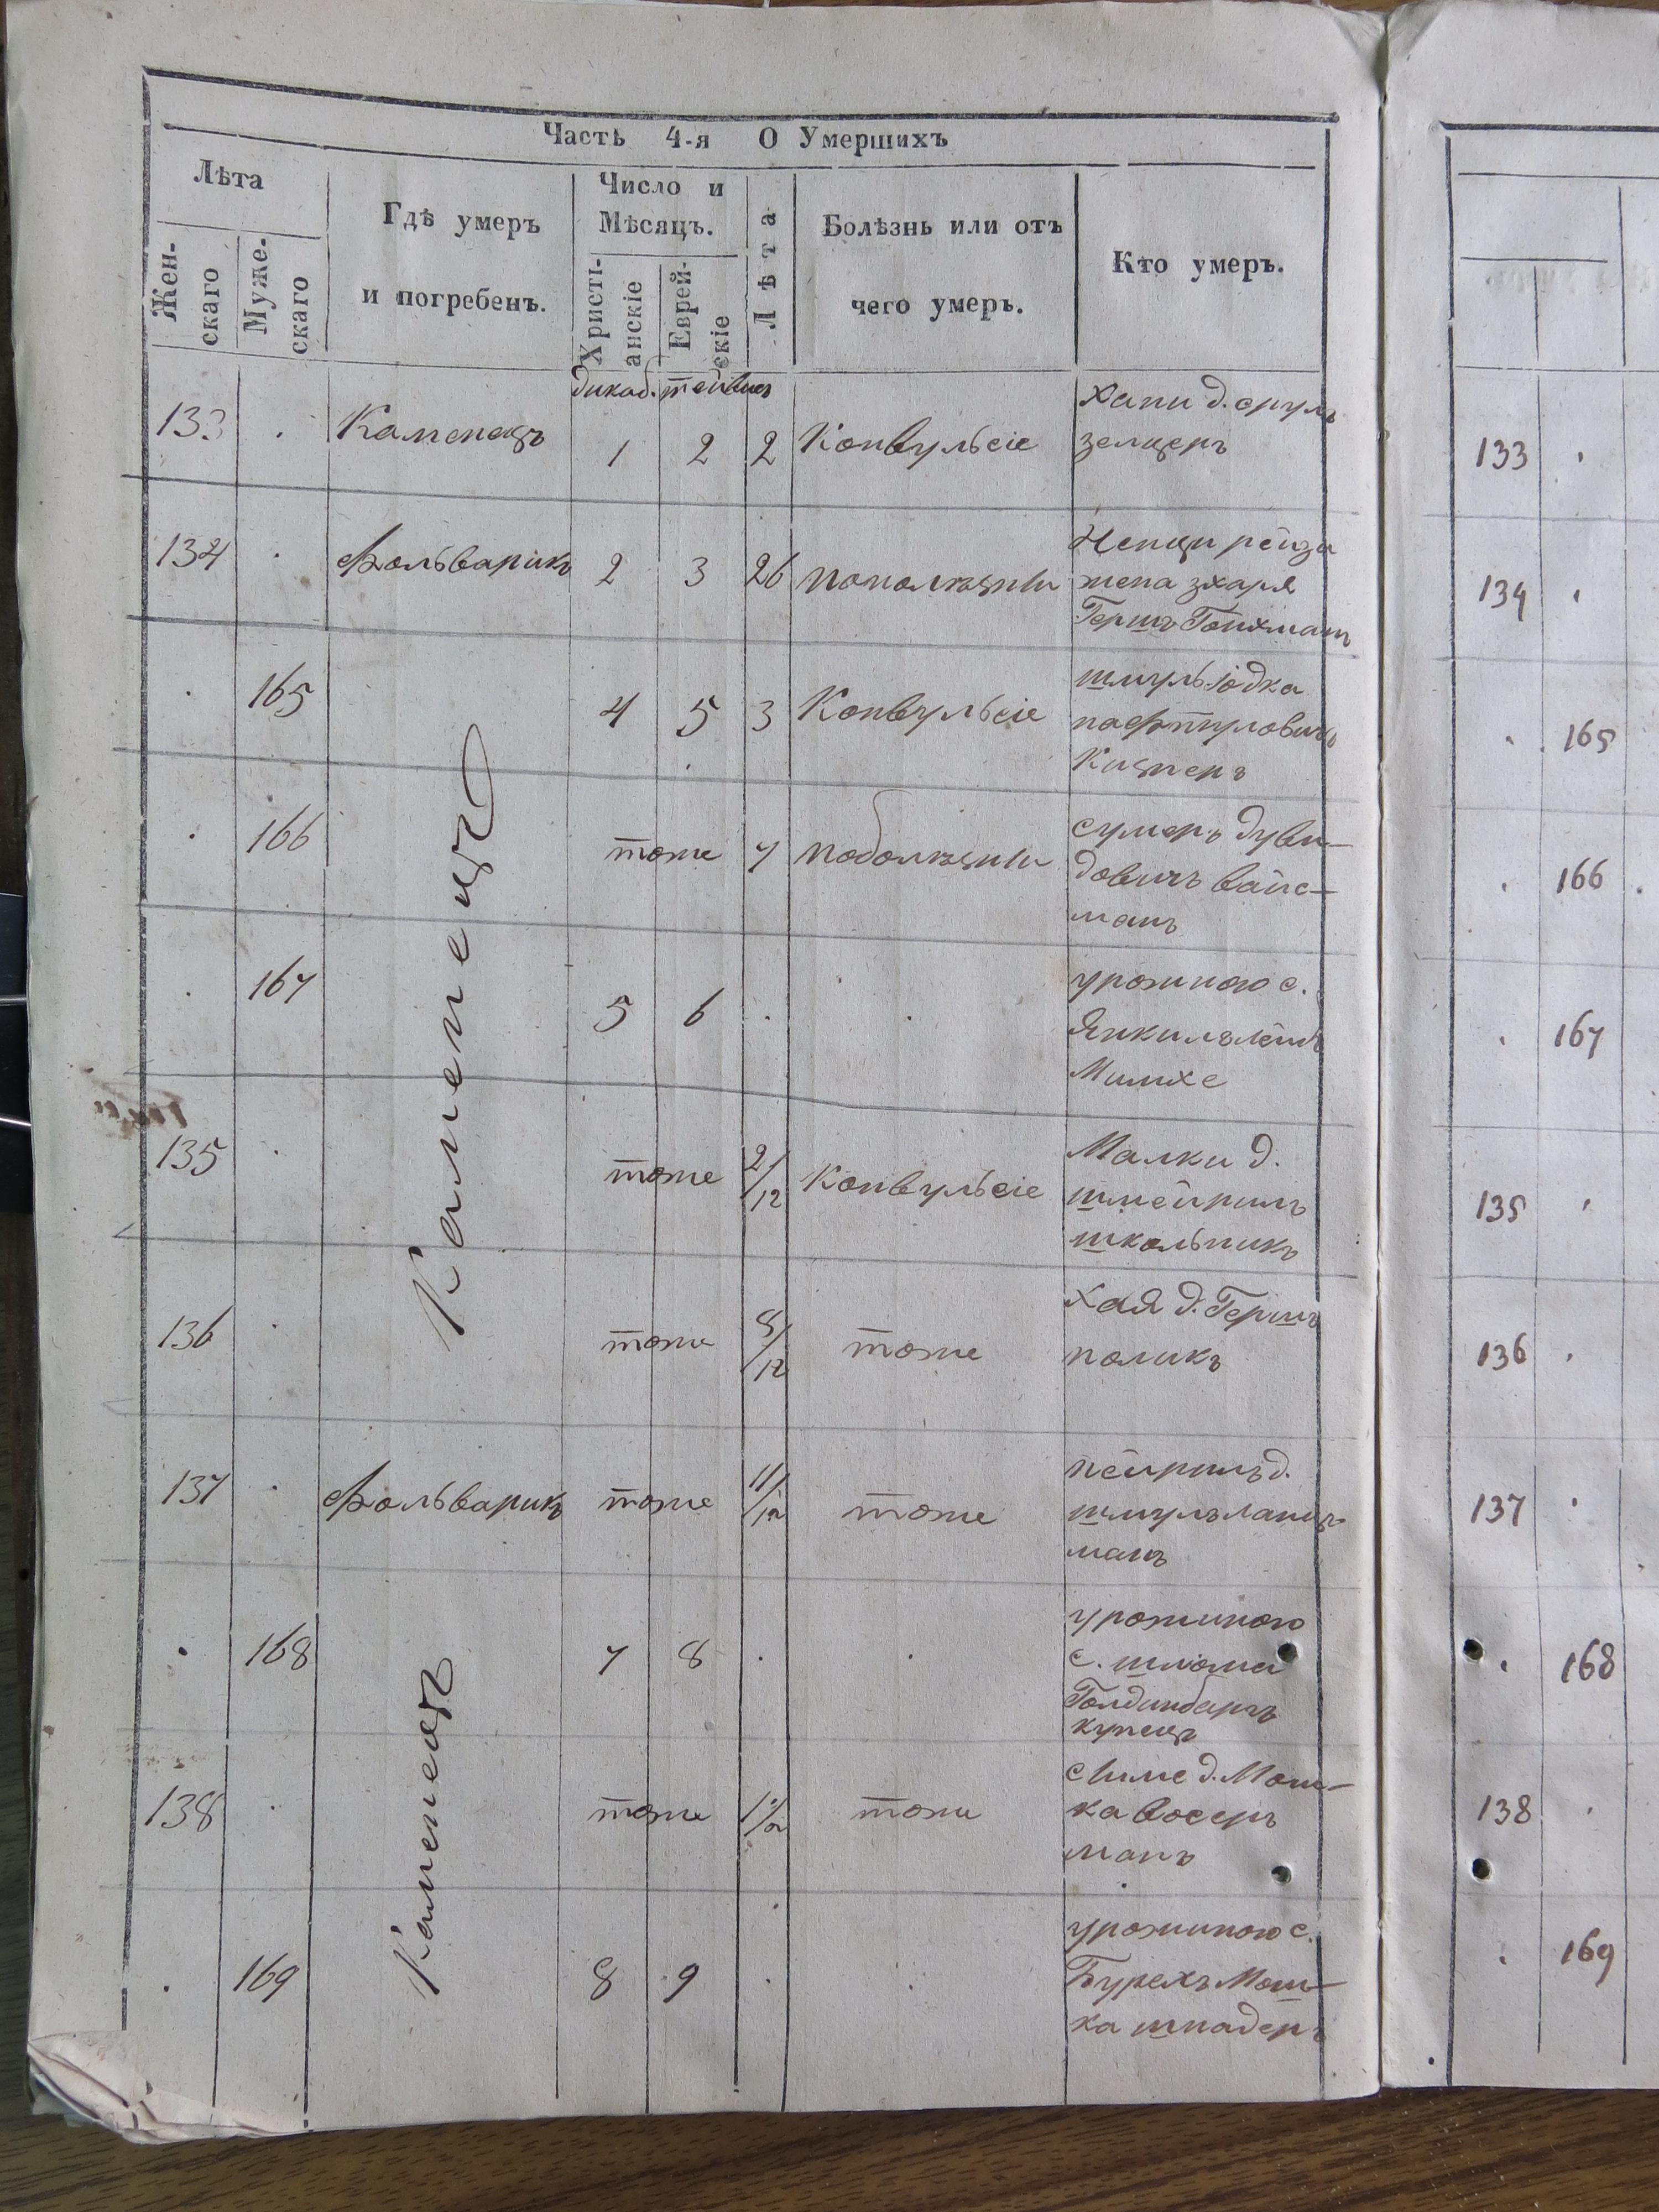 Часть 4-я О Умершихъ
Лѣта
Жен-
скаго
Муже-
скаго
Гдѣ умеръ
и погребенъ.
Число и
Мѣсяцъ.
Христі-
анскіе
Еврей-
скіе
Лѣта
Болѣзнь или отъ
чего умеръ.
Кто умеръ.
дикаб. тейвис
133 . Каменецъ 1 2 2 Конвульсіе
Хани д. сруль
зелцеръ
134 . Фольварикъ 2 3 26
рейзи
жена зхаря
Гершъ Гойхманъ
. 165 4 5 3 Конвульсіе
шмуль юдка
нафтуловичъ
Кизнеръ
Каменецъ
. 166 тоже 7
сумеръ дуви-
довичъ вайс-
манъ
. 167 5 6 . .
урожиною с.
Янкильлейбъ
Милхе
135 . тоже 2/12 Конвульсіе
Малки д.
шмейрилъ
школьникъ
136 . тоже 5/12 тоже
хая д. Гершъ
поликъ
137 . Фольварикъ тоже 11/12 тоже
пейрилъ д.
шмулъ
манъ
. 168 7 8 . .
урожиною
с. шлома
Голдинбаргъ
купецъ
Каменецъ
138 . тоже 1/2 тоже
д. Мош-
ка восеръ
манъ
. 169 8 9 . .
урожиною с.
Бурехъ Мош-
ка шпадеръ
133 .
134 .
. 165
. 166 .
. 167
135 .
136 .
137 .
. 168
138 .
. 169